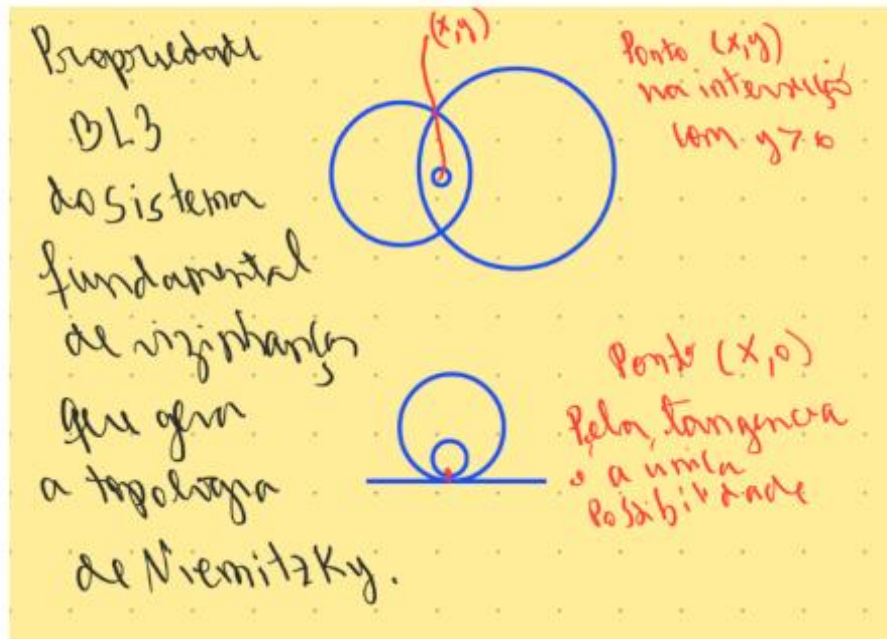 Propriedade
BL3
do sistema
fundamental
de vizinhanças
que gera
a topologia
de Niemitzky.
(x,y)
Ponto (x,y)
na interseção
com y>0
Ponto (x,0)
Pela tangência
é a única
Possibilidade